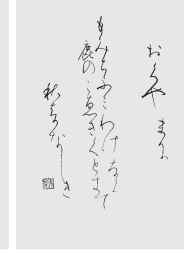 おくや まに
もみちふみわけ なく
鹿の こ恵きくときそ
秋はかなしき